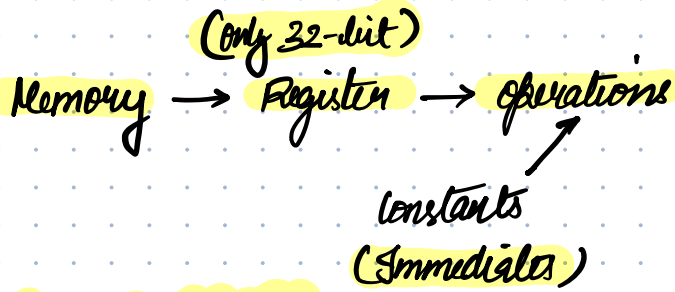 (only 32-bit)
Memory → Register → operations
Constants
(Immediates)